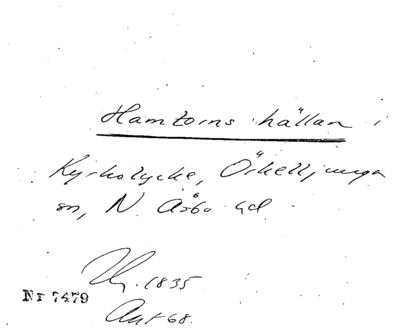 Hamtorns hällan i
Kyrkolycke, Örkelljunga
sn, N. Åsbo hd.
Uy. 1835
Nr 7479
Ant 68.